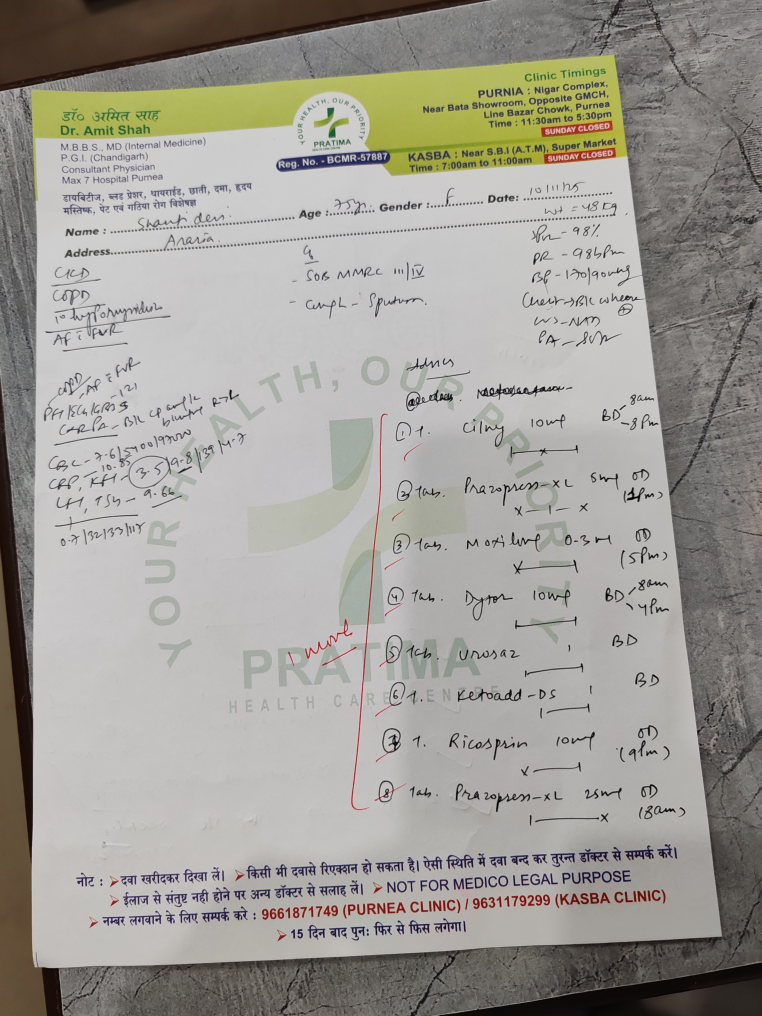 डॉ० अमित साह
Dr. Amit Shah
M.B.B.S., MD (Internal Medicine)
P.G.I. (Chandigarh)
Consultant Physician
Max 7 Hospital Purnea
डायबिटीज, ब्लड प्रेशर, थायराईड, छाती, दमा, हृदय
मस्तिष्क, पेट एवं गठिया रोग विशेषज्ञ
YOUR HEALTH, OUR PRIORITY
PRATIMA
HEALTH CARE CENTRE
Reg. No. - BCMR-57887
Clinic Timings
PURNIA : Nigar Complex,
Near Bata Showroom, Opposite GMCH,
Line Bazar Chowk, Purnea
Time : 11:30am to 5:30pm
SUNDAY CLOSED
KASBA : Near S.B.I (A.T.M), Super Market
Time : 7:00am to 11:00am SUNDAY CLOSED
Name : Shanti devi Age : 75yr Gender : F Date: 10/11/25
Address Araria
wt = 48 kg
SPO2 - 98%
PR - 98 bpm
BP - 170/90 mmHg
Chest → B/L wheeze +
PA - Soft
CKD
COPD
AF c FVR
- SOB MMRC III/IV
- Cough - Sputum
COPD
- AF c FVR
CBC - 7.6/5400/97000
CRP, KFT - 3.5/9.8/139/4.7
10.85
LFT, TSH - 9.66
0.7/32/33/117
Advice
1 T. Cilny 10mg BD 8am - 8pm
2 Tab. Prazopress-XL 5mg OD
x - 1 - x
3 Tab. Moxilong 0.3mg OD (5pm)
4 Tab. Dytor 10mg BD 8am 4pm
5 Tab. Urosaz 1 BD
6 T. Ketoadd-DS 1 BD
7 T. Ricosprin 10mg OD (9pm)
8 Tab. Prazopress-XL 25mg OD (8am)
YOUR HEALTH, OUR PRIORITY
PRATIMA
HEALTH CARE CENTRE
नोट : दवा खरीदकर दिखा लें। किसी भी दवासे रिएक्शन हो सकता है। ऐसी स्थिति में दवा बन्द कर तुरन्त डॉक्टर से सम्पर्क करें।
ईलाज से संतुष्ट नही होने पर अन्य डॉक्टर से सलाह लें। NOT FOR MEDICO LEGAL PURPOSE
नम्बर लगवाने के लिए सम्पर्क करे : 9661871749 (PURNEA CLINIC) / 9631179299 (KASBA CLINIC)
15 दिन बाद पुनः फिर से फिस लगेगा।